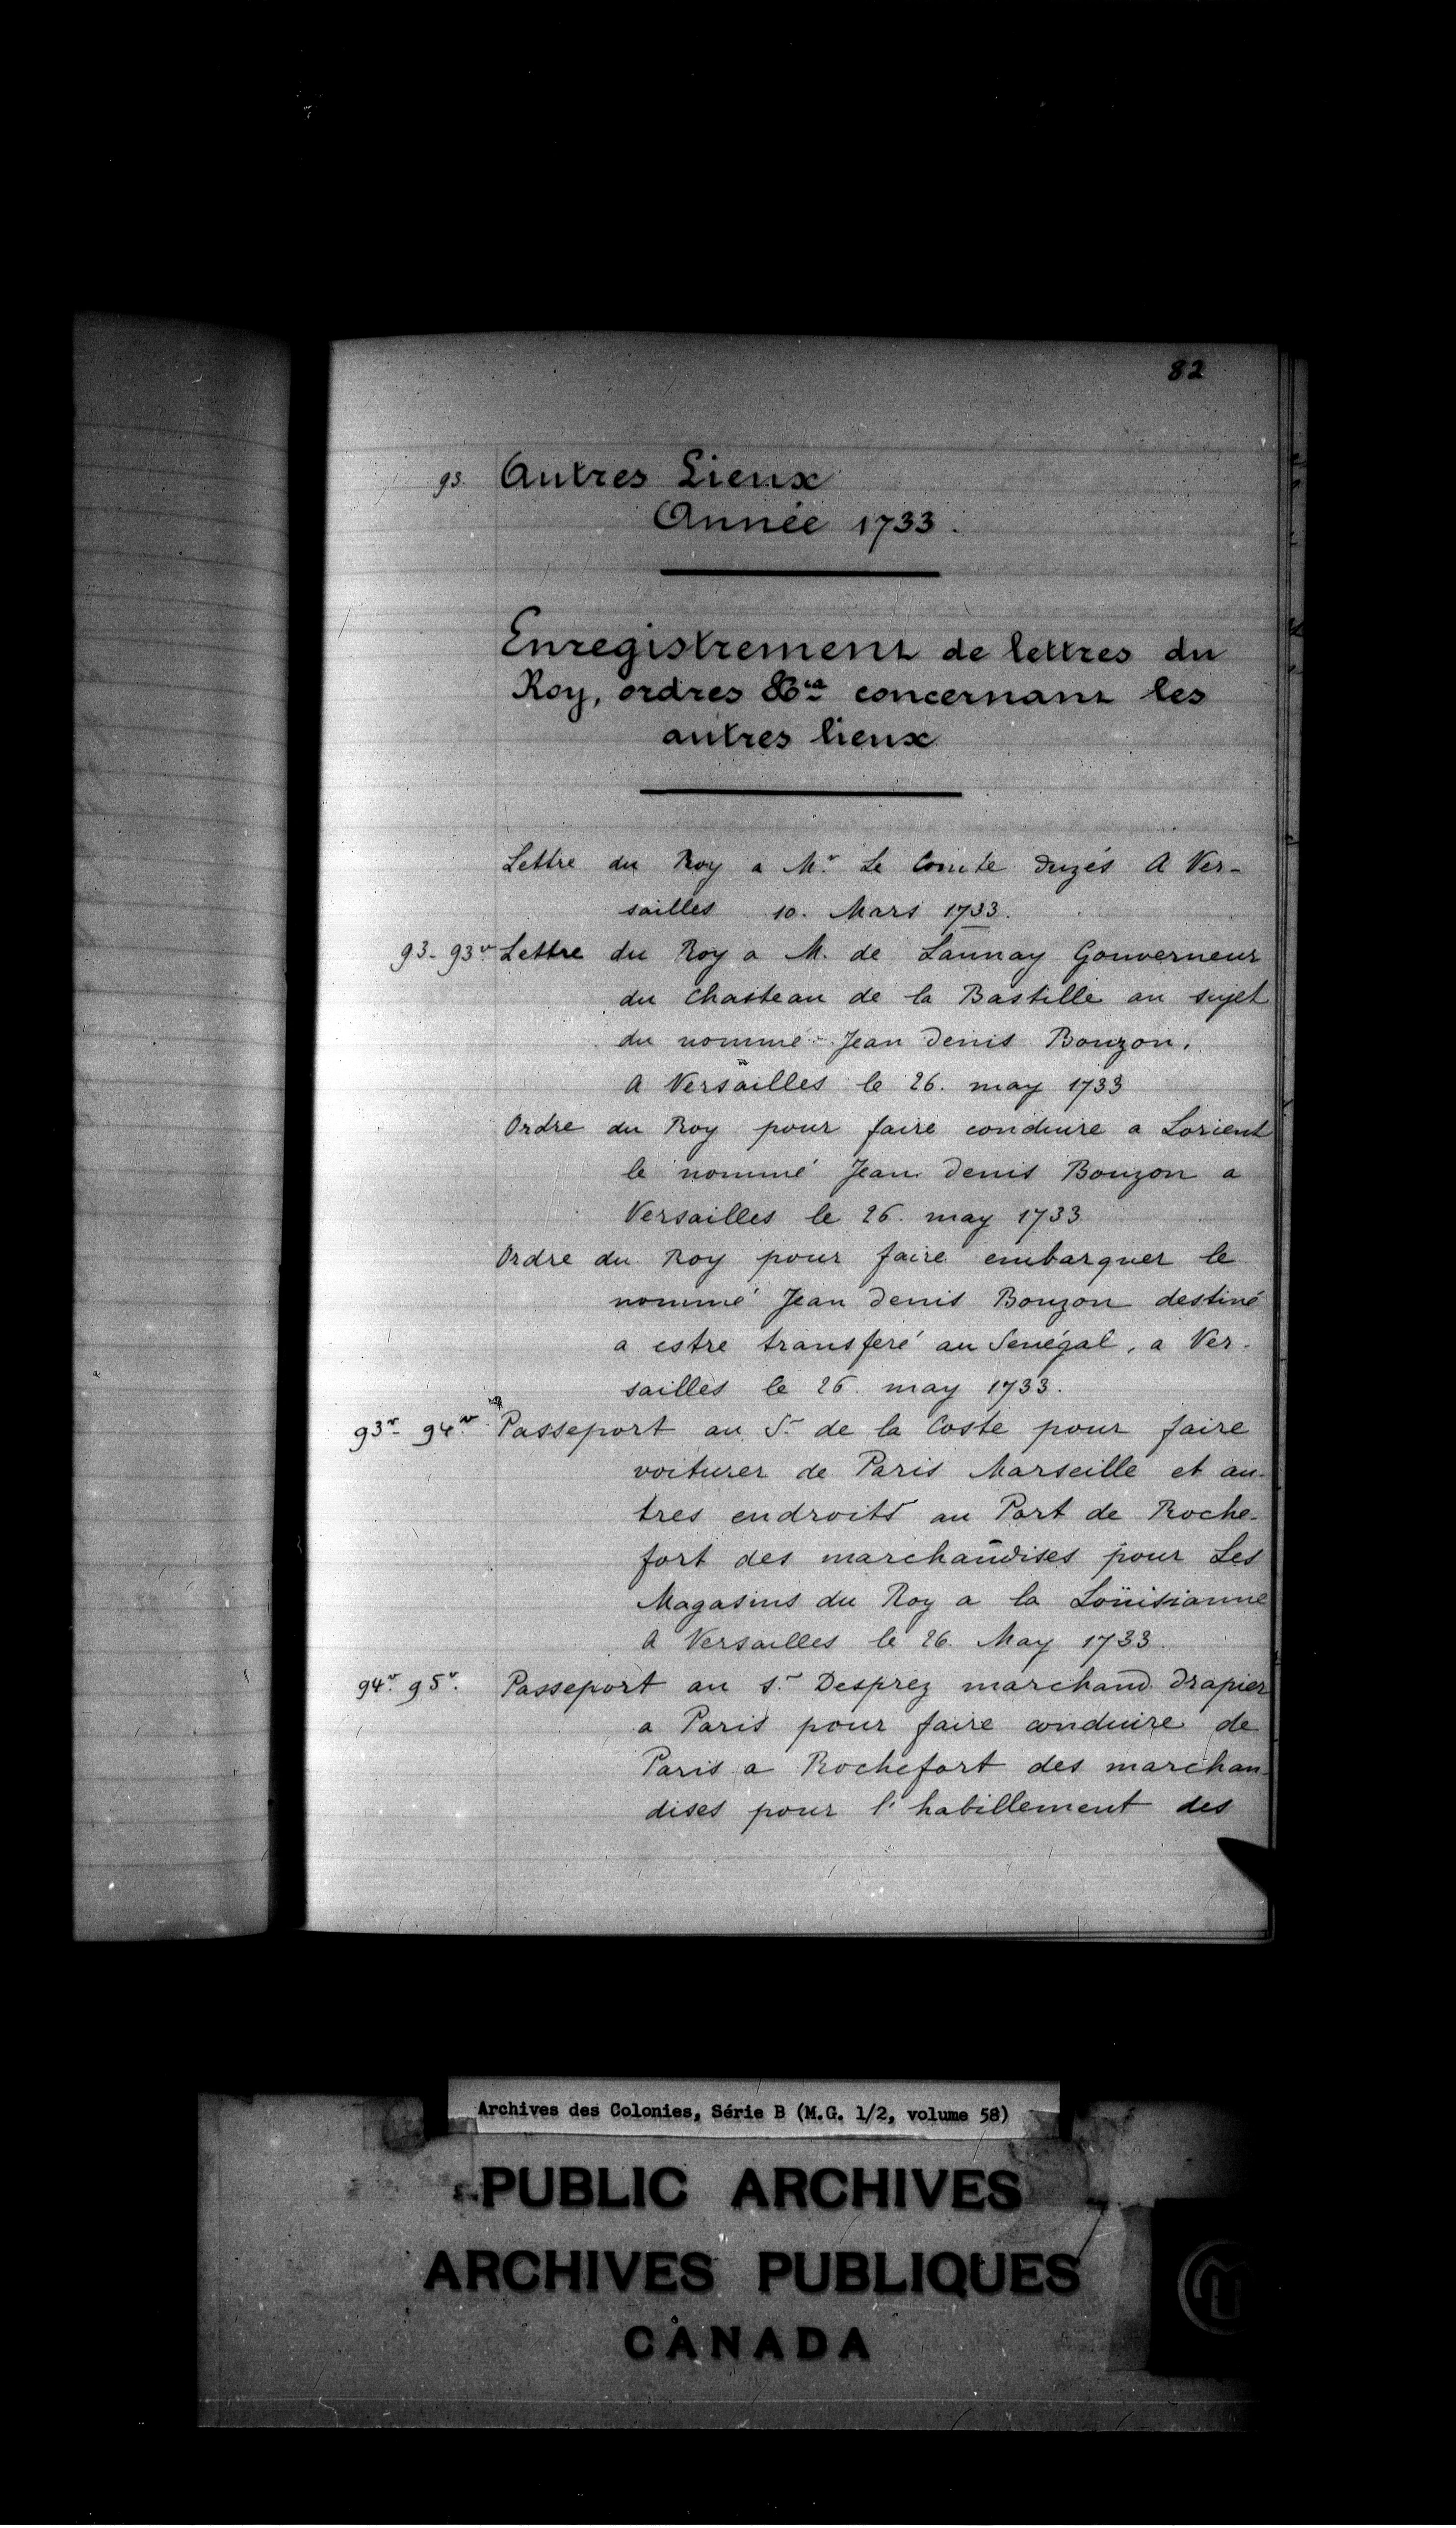 82
93. Autres Lieux
Année 1733.
Enregistrement de lettres du
Roy, ordres &ca concernant les
autres lieux
Lettre du Roy a Mr. Le Comte duzés A Ver-
sailles 10. Mars 1733.
93-93v. Lettre du Roy a M. de Launay Gouverneur
du Chasteau de la Bastille au sujet
du nommé Jean Denis Bouzon.
A Versailles le 26. may 1733
Ordre du Roy pour faire conduire a Lorient
le nommé Jean Denis Bouzon a
Versailles le 26. may 1733
Ordre du Roy pour faire embarquer le
nommé Jean Denis Bouzon destiné
a estre transferé au Senégal, a Ver-
sailles le 26. may 1733.
93v-94v. Passeport au Sr de la Coste pour faire
voiturer de Paris Marseille et au-
tres endroits au Port de Roche-
fort des marchandises pour Les
Magasins du Roy a la Loüisianne
A Versailles le 26. May 1733.
94v. 95v. Passeport au Sr Desprez marchand drapier
a Paris pour faire conduire de
Paris a Rochefort des marchan-
dises pour l'habillement des
Archives des Colonies, Série B (M.G. 1/2, volume 58)
PUBLIC ARCHIVES
ARCHIVES PUBLIQUES
CANADA